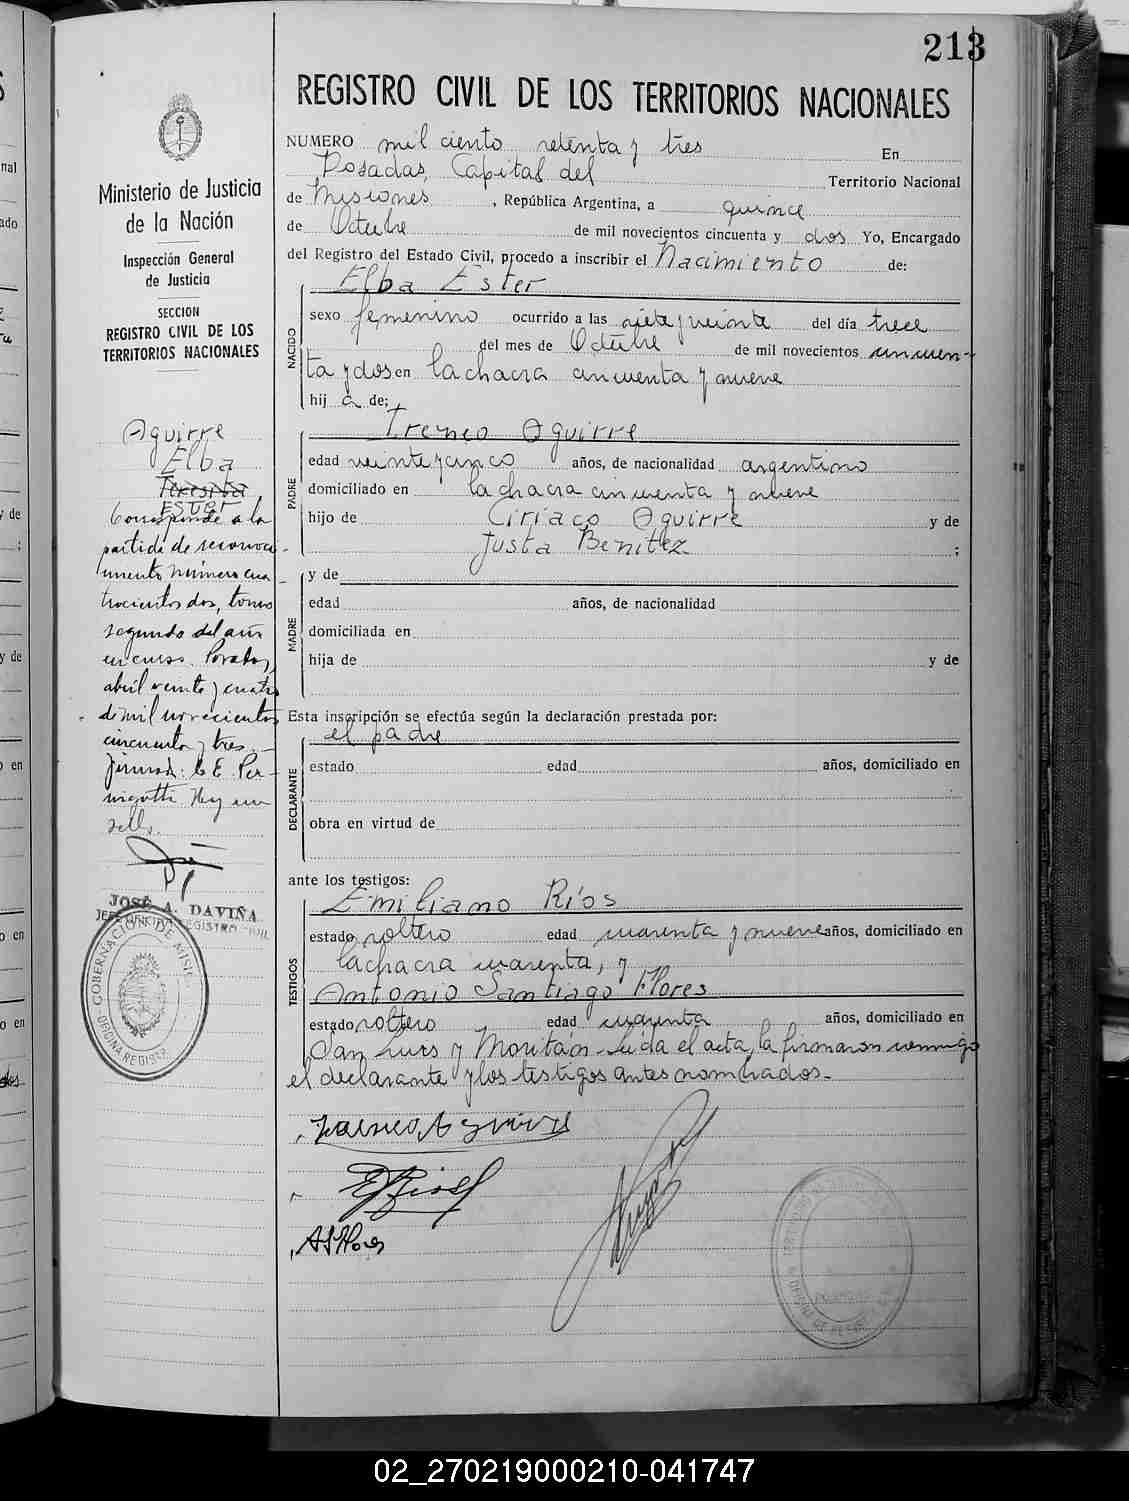 213
REGISTRO CIVIL DE LOS TERRITORIOS NACIONALES
NUMERO mil ciento setenta y tres En
Posadas, Capital del Territorio Nacional
de Misiones, República Argentina, a quince
de Octubre de mil novecientos cincuenta y dos Yo, Encargado
del Registro del Estado Civil, procedo a inscribir el Nacimiento de:
Elba Ester
NACIDO
sexo femenino ocurrido a las siete y veinte del día trece
del mes de Octubre de mil novecientos cincuen-
ta y dos en la chacra cincuenta y nueve
hij a de;
PADRE
Ireneo Aguirre
edad veinte y cinco años, de nacionalidad argentino
domiciliado en la chacra cincuenta y nueve
hijo de Ciriaco Aguirre y de
Justa Benitez ;
MADRE
y de
edad años, de nacionalidad
domiciliada en
hija de y de
Esta inscripción se efectúa según la declaración prestada por:
DECLARANTE
el padre
estado edad años, domiciliado en
obra en virtud de
ante los testigos:
TESTIGOS
Emiliano Ríos
estado soltero edad cuarenta y nueve años, domiciliado en
la chacra cuarenta, y
Antonio Santiago Flores
estado soltero edad cuarenta años, domiciliado en
San Luis y Moritán. Leída el acta, la firmaron conmigo
el declarante y los testigos antes nombrados.-
Ireneo Aguirre
E Rios
ASFlores
Ministerio de Justicia
de la Nación
Inspección General
de Justicia
SECCION
REGISTRO CIVIL DE LOS
TERRITORIOS NACIONALES
Aguirre
Elba
Teresita
ESTER
Corresponde a la
partida de reconoci-
miento número cua-
trocientos dos, tomo
segundo del año
en curso. Posadas,
abril veinte y cuatro
de mil novecientos
cincuenta y tres.-
Firmado: C E. Per-
vigotti Hay un
sello.
JOSÉ A. DAVIÑA
JEFE OFICINA REGISTRO CIVIL
GOBERNACION DE MISI
nal
ado
y de
;
y de
o en
o en
o en
02_270219000210-041747